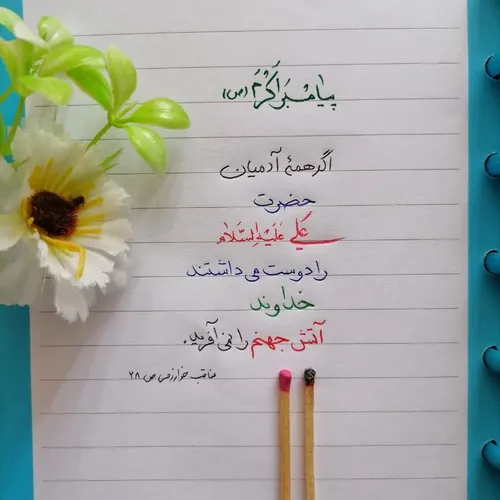 پیامبر اکرم (ص)
اگر همهٔ آدمیان
حضرت
علی علیه السلام
را دوست می داشتند
خداوند
آتش جهنم را نمی آفرید.
مناقب خوارزمی ص ۲۸